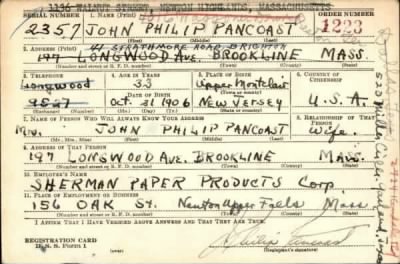 1196 WALNUT STREET NEWTON HIGHLANDS, MASSACHUSETTS
SERIAL NUMBER 1. NAME (Print) ORDER NUMBER
2357 JOHN PHILIP PANCOAST 1223
(First) (Middle) (Last)
2. ADDRESS (Print) 41 STRATHMORE ROAD BRIGHTON
197 LONGWOOD AVE. BROOKLINE MASS.
(Number and street or R. F. D. number) (Town) (County) (State)
3. TELEPHONE 4. AGE IN YEARS 5. PLACE OF BIRTH 6. COUNTRY OF CITIZENSHIP
Longwood 33 Upper Montclair
DATE OF BIRTH (Town or county)
9527 Oct. 31 1906 New Jersey U.S.A.
(Mo.) (Day) (Yr.) (State or country)
7. NAME OF PERSON WHO WILL ALWAYS KNOW YOUR ADDRESS 8. RELATIONSHIP OF THAT PERSON
Mrs. JOHN PHILIP PANCOAST Wife.
(Mr., Mrs., Miss) (First) (Middle) (Last)
9. ADDRESS OF THAT PERSON
197 LONGWOOD AVE. BROOKLINE Mass.
(Number and street or R. F. D. number) (Town) (County) (State)
10. EMPLOYER'S NAME
SHERMAN PAPER PRODUCTS Corp.
11. PLACE OF EMPLOYMENT OR BUSINESS
156 OAK St. Newton Upper Falls Mass
(Number and street or R. F. D. number) (Town) (County) (State)
I AFFIRM THAT I HAVE VERIFIED ABOVE ANSWERS AND THAT THEY ARE TRUE.
REGISTRATION CARD
D. S. S. FORM 1
(Registrant's signature)
John Philip Pancoast